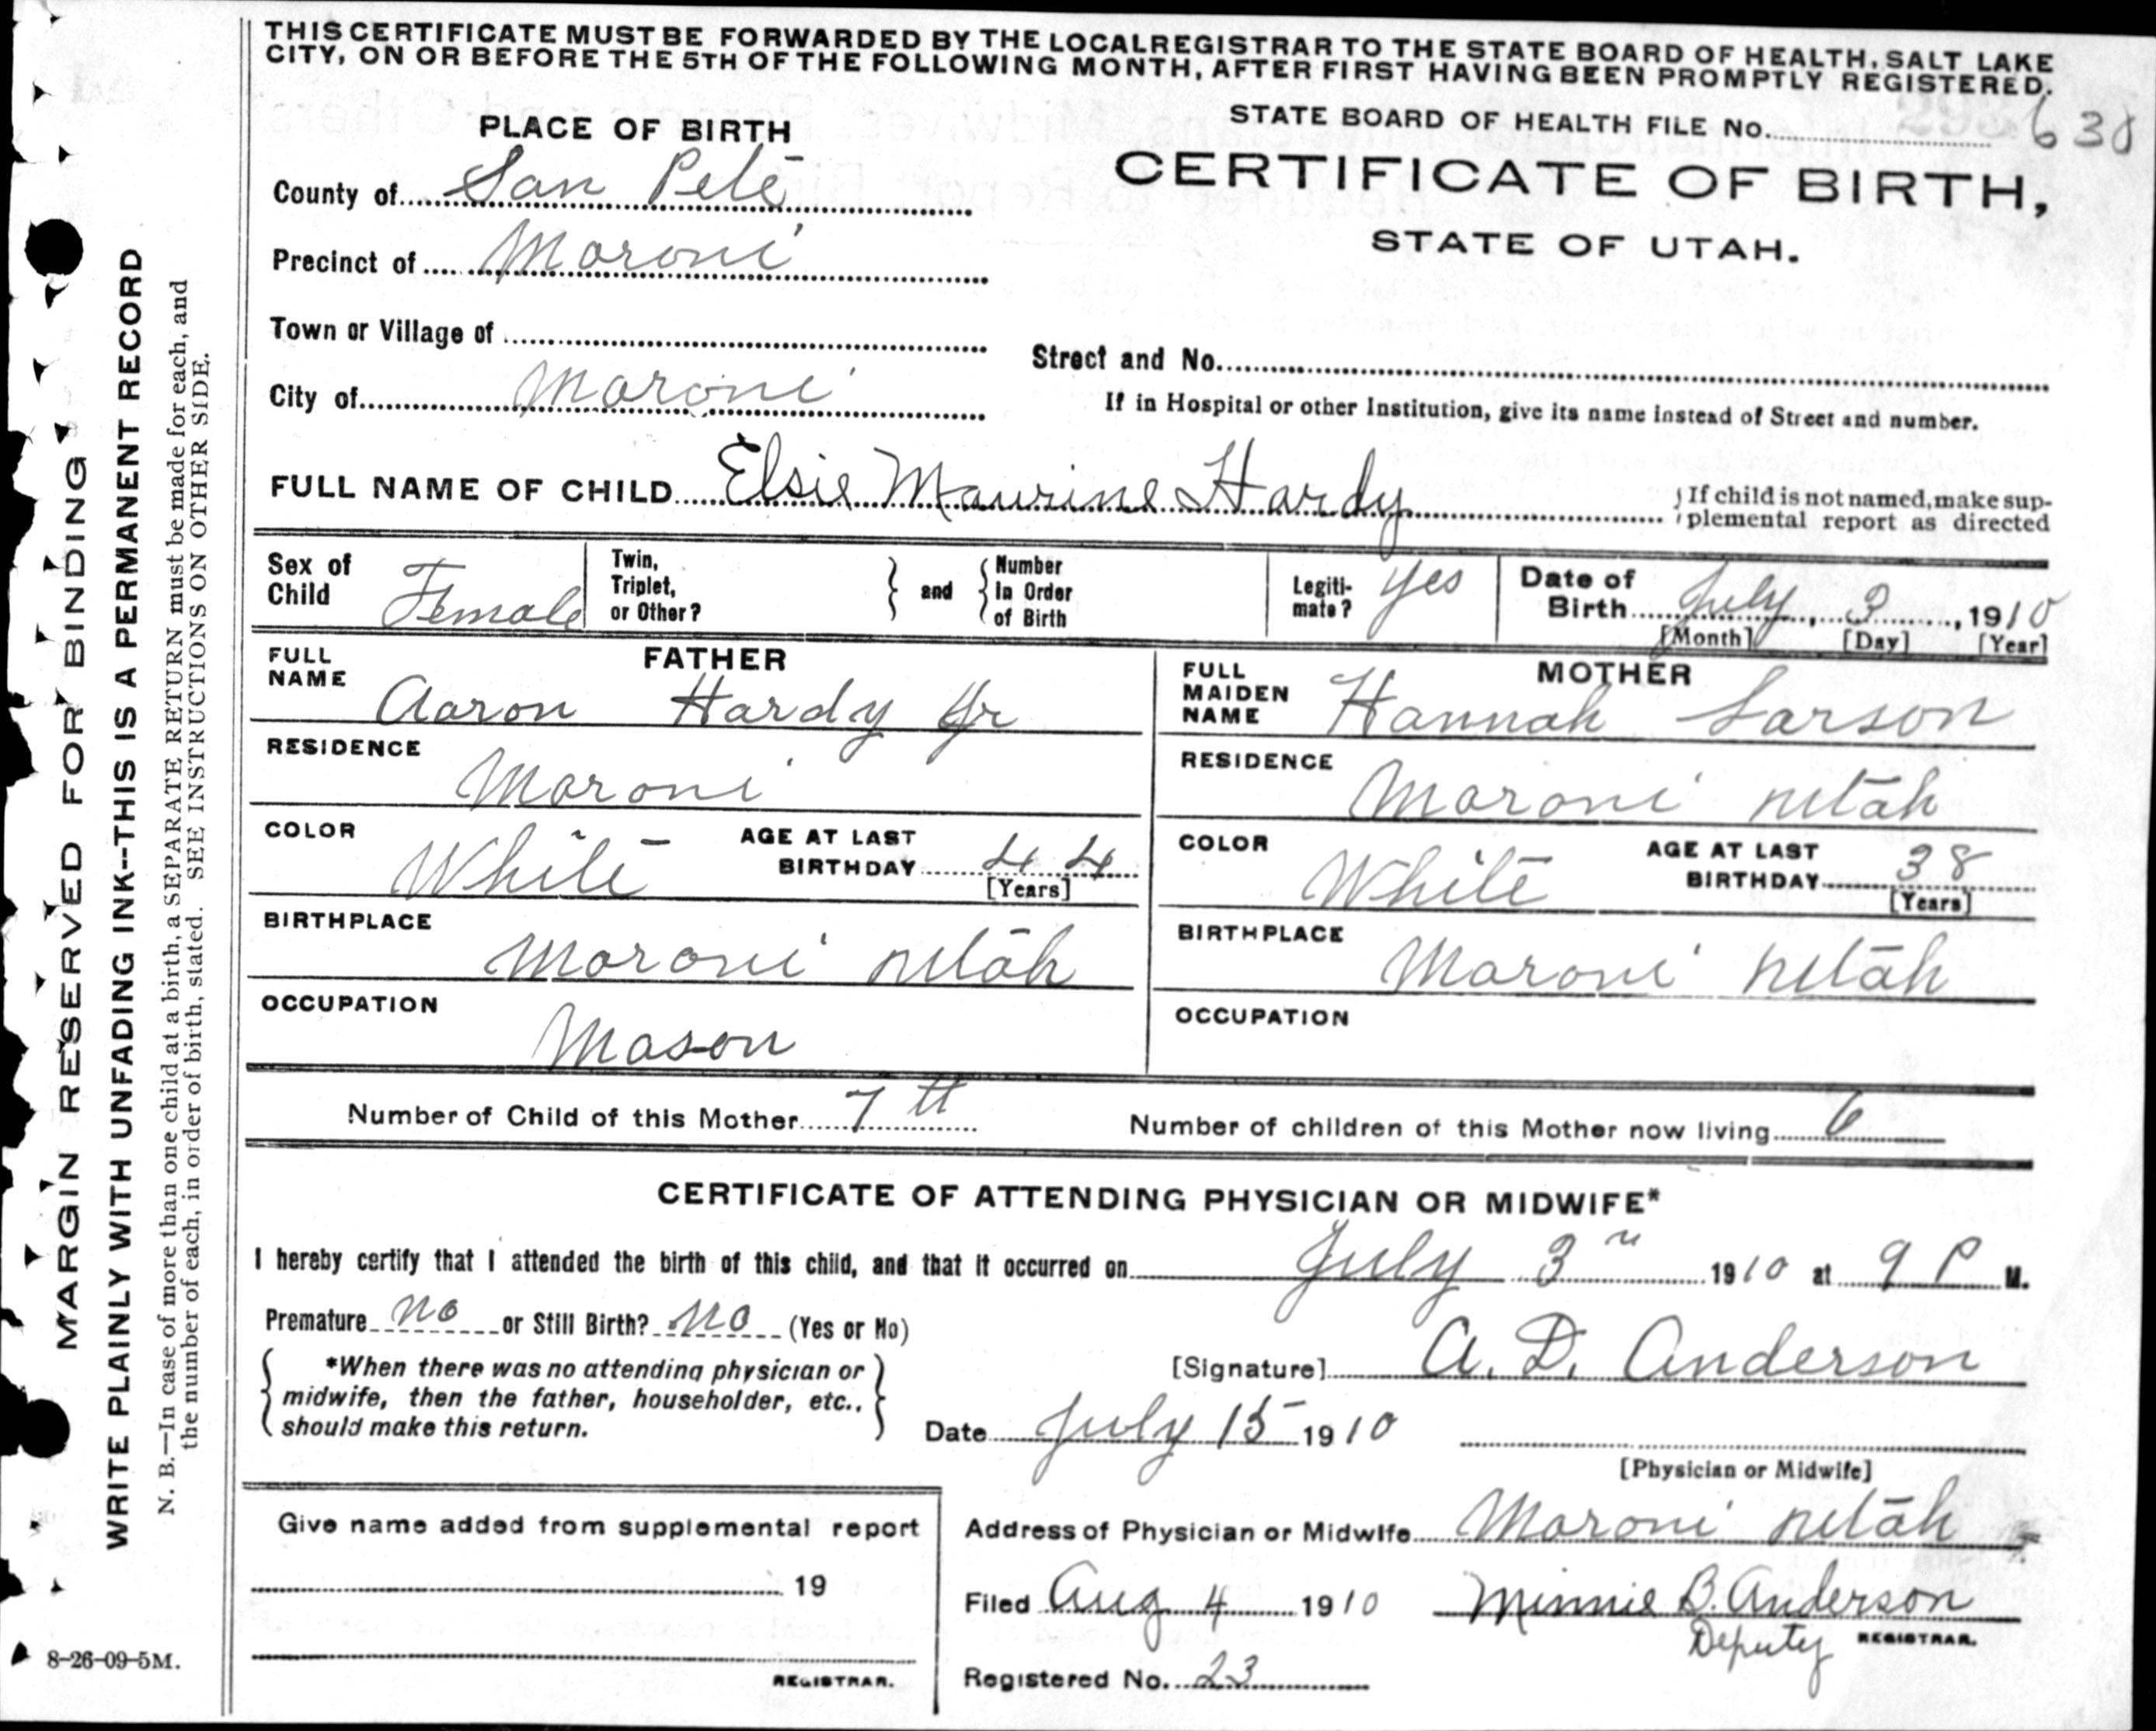 THIS CERTIFICATE MUST BE FORWARDED BY THE LOCAL REGISTRAR TO THE STATE BOARD OF HEALTH, SALT LAKE
CITY, ON OR BEFORE THE 5TH OF THE FOLLOWING MONTH, AFTER FIRST HAVING BEEN PROMPTLY REGISTERED.
STATE BOARD OF HEALTH FILE No. 638
PLACE OF BIRTH
CERTIFICATE OF BIRTH,
STATE OF UTAH.
County of San Pete
Precinct of Moroni
Town or Village of
Street and No.
City of Moroni
If in Hospital or other Institution, give its name instead of Street and number.
FULL NAME OF CHILD Elsie Maurine Hardy
If child is not named, make sup-
plemental report as directed
Sex of Child Female
Twin, Triplet, or Other?
and
Number In Order of Birth
Legiti-mate? yes
Date of Birth July, 3, 1910
[Month] [Day] [Year]
FATHER
FULL NAME Aaron Hardy Jr
RESIDENCE Moroni
COLOR White
AGE AT LAST BIRTHDAY 44
[Years]
BIRTHPLACE Moroni Utah
OCCUPATION Mason
MOTHER
FULL MAIDEN NAME Hannah Larson
RESIDENCE Moroni Utah
COLOR White
AGE AT LAST BIRTHDAY 38
[Years]
BIRTHPLACE Moroni Utah
OCCUPATION
Number of Child of this Mother 7th
Number of children of this Mother now living 6
CERTIFICATE OF ATTENDING PHYSICIAN OR MIDWIFE*
I hereby certify that I attended the birth of this child, and that it occurred on July 3 1910 at 9 P M.
Premature no or Still Birth? no (Yes or No)
*When there was no attending physician or
midwife, then the father, householder, etc.,
should make this return.
[Signature] A. D. Anderson
Date July 15 1910
[Physician or Midwife]
Give name added from supplemental report
19
REGISTRAR.
Address of Physician or Midwife Moroni Utah
Filed Aug 4 1910 Minnie B. Anderson
Deputy REGISTRAR.
Registered No. 23
MARGIN RESERVED FOR BINDING
WRITE PLAINLY WITH UNFADING INK--THIS IS A PERMANENT RECORD
N. B.—In case of more than one child at a birth, a SEPARATE RETURN must be made for each, and
the number of each, in order of birth, stated. SEE INSTRUCTIONS ON OTHER SIDE.
8-26-09-5M.